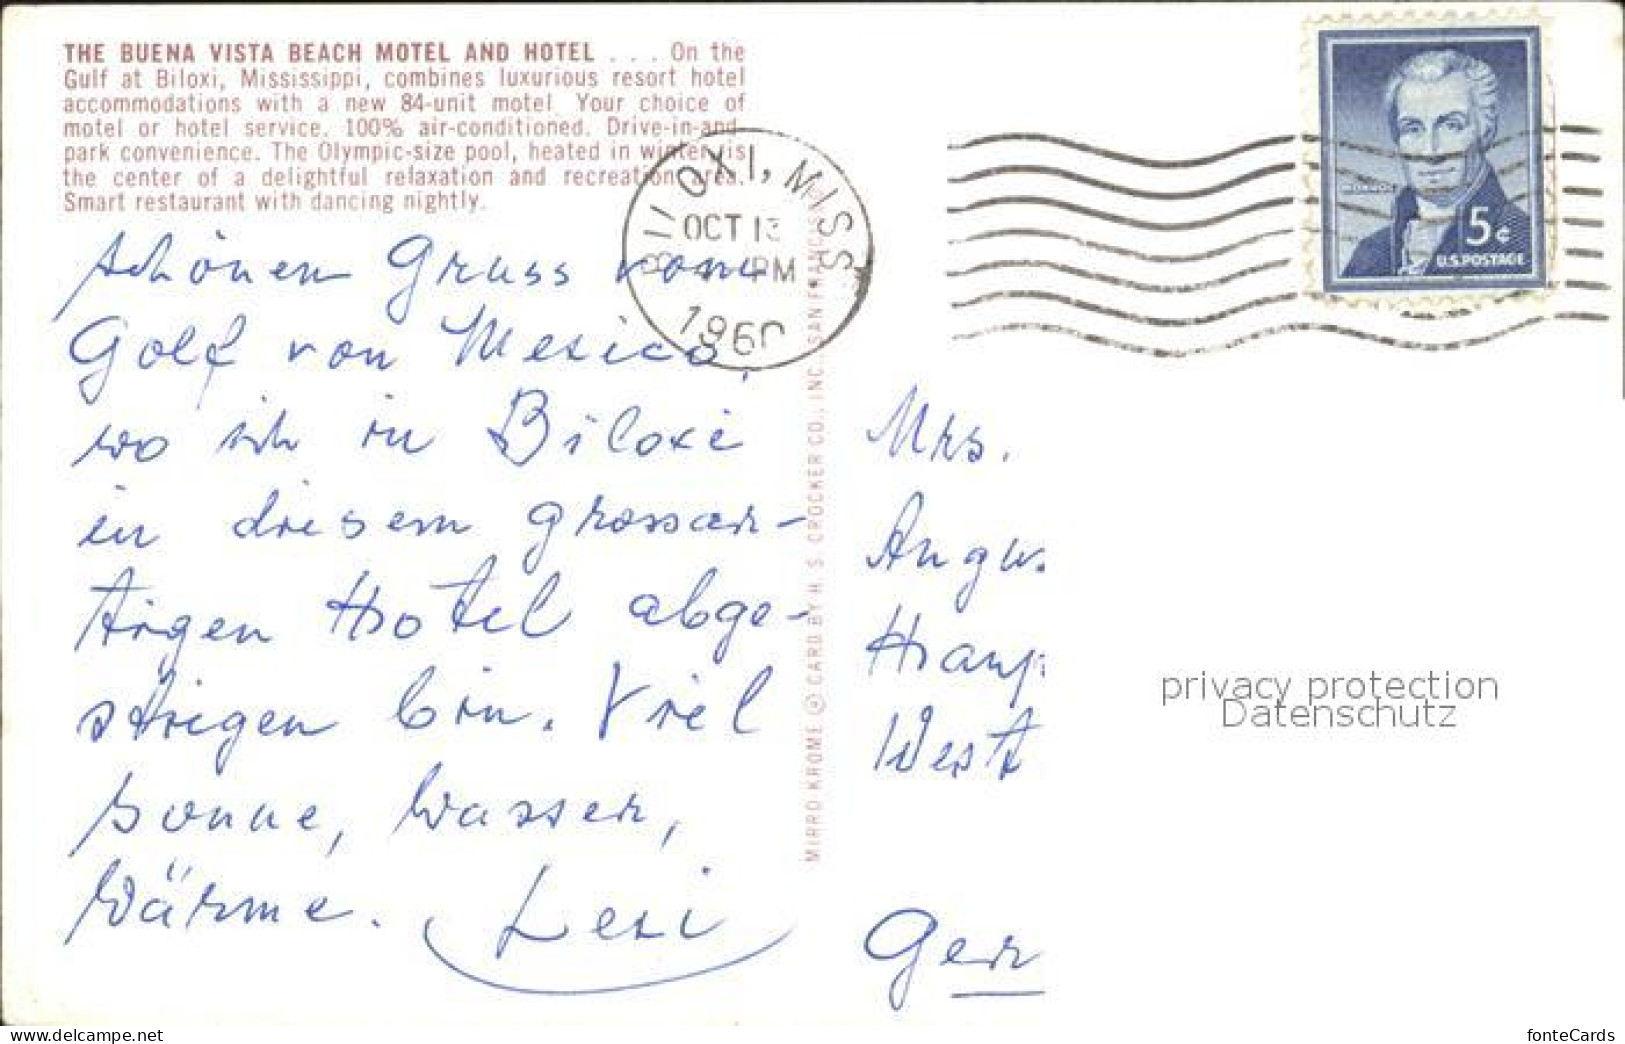 THE BUENA VISTA BEACH MOTEL AND HOTEL . . . On the
Gulf at Biloxi, Mississippi, combines luxurious resort hotel
accommodations with a new 84-unit motel. Your choice of
motel or hotel service. 100% air-conditioned. Drive-in-and-
park convenience. The Olympic-size pool, heated in winter, is
the center of a delightful relaxation and recreation area.
Smart restaurant with dancing nightly.
BILOXI, MISS
OCT 13
PM
1960
MONROE
5¢
U.S. POSTAGE
Schönen Gruss vom
Golf von Mexico,
wo ich in Biloxi
in diesem grossar-
tigen Hotel abge-
stiegen bin. Viel
Sonne, Wasser,
Wärme.
MIRRO KROME ® CARD BY H. S. CROCKER CO., INC., SAN FRANCISCO
Mrs.
West
Ger
privacy protection
Datenschutz
www.delcampe.net
fonteCards